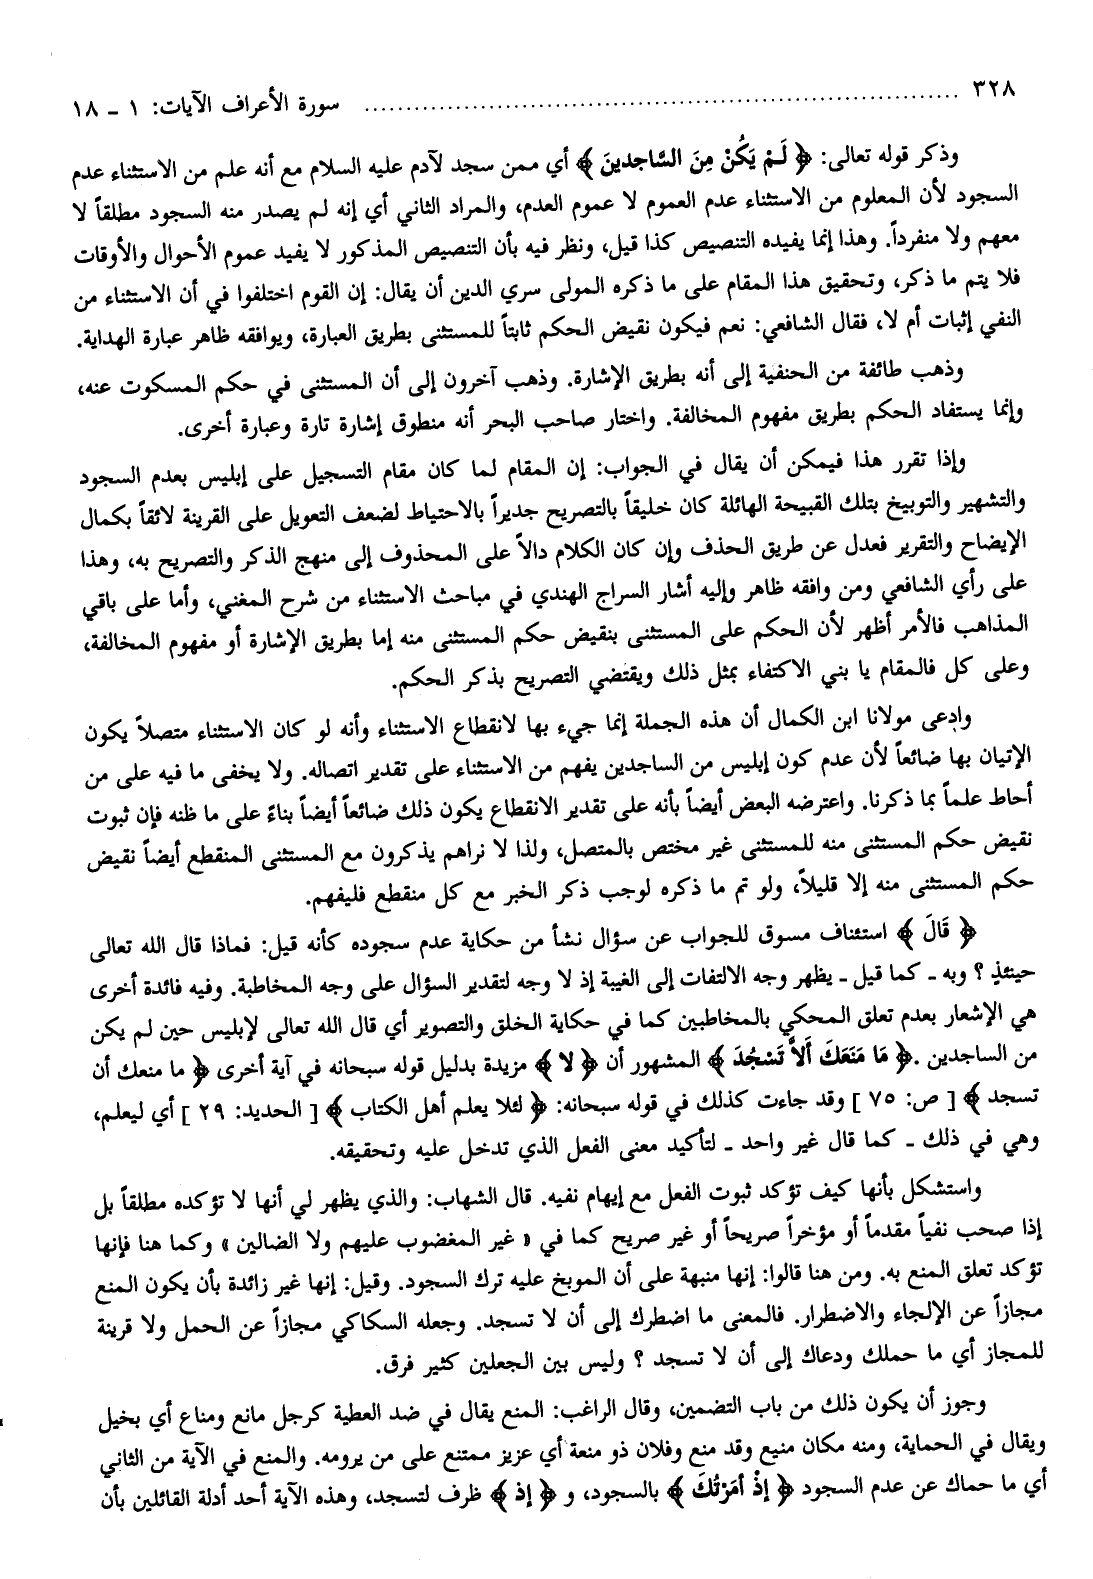 ٣٢٨ .......... سورة الأعراف الآيات: ١ ـ ١٨
وذكر قوله تعالى: ﴿ لَمْ يَكُنْ مِنَ السَّاجدينَ ﴾ أي ممن سجد لآدم عليه السلام مع أنه علم من الاستثناء عدم
السجود لأن المعلوم من الاستثناء عدم العموم لا عموم العدم، والمراد الثاني أي إنه لم يصدر منه السجود مطلقاً لا
معهم ولا منفرداً. وهذا إنما يفيده التنصيص كذا قيل، ونظر فيه بأن التنصيص المذكور لا يفيد عموم الأحوال والأوقات
فلا يتم ما ذكر، وتحقيق هذا المقام على ما ذكره المولى سري الدين أن يقال: إن القوم اختلفوا في أن الاستثناء من
النفي إثبات أم لا، فقال الشافعي: نعم فيكون نقيض الحكم ثابتاً للمستثنى بطريق العبارة، ويوافقه ظاهر عبارة الهداية.
وذهب طائفة من الحنفية إلى أنه بطريق الإشارة. وذهب آخرون إلى أن المستثنى في حكم المسكوت عنه،
وإنما يستفاد الحكم بطريق مفهوم المخالفة. واختار صاحب البحر أنه منطوق إشارة تارة وعبارة أخرى.
وإذا تقرر هذا فيمكن أن يقال في الجواب: إن المقام لما كان مقام التسجيل على إبليس بعدم السجود
والتشهير والتوبيخ بتلك القبيحة الهائلة كان خليقاً بالتصريح جديراً بالاحتياط لضعف التعويل على القرينة لائقاً بكمال
الإيضاح والتقرير فعدل عن طريق الحذف وإن كان الكلام دالاً على المحذوف إلى منهج الذكر والتصريح به، وهذا
على رأي الشافعي ومن وافقه ظاهر وإليه أشار السراج الهندي في مباحث الاستثناء من شرح المغني، وأما على باقي
المذاهب فالأمر أظهر لأن الحكم على المستثنى بنقيض حكم المستثنى منه إما بطريق الإشارة أو مفهوم المخالفة،
وعلى كل فالمقام يا بني الاكتفاء بمثل ذلك ويقتضي التصريح بذكر الحكم.
وادعى مولانا ابن الكمال أن هذه الجملة إنما جيء بها لانقطاع الاستثناء وأنه لو كان الاستثناء متصلاً يكون
الإتيان بها ضائعاً لأن عدم كون إبليس من الساجدين يفهم من الاستثناء على تقدير اتصاله. ولا يخفى ما فيه على من
أحاط علماً بما ذكرنا. واعترضه البعض أيضاً بأنه على تقدير الانقطاع يكون ذلك ضائعاً أيضاً بناءً على ما ظنه فإن ثبوت
نقيض حكم المستثنى منه للمستثنى غير مختص بالمتصل، ولذا لا نراهم يذكرون مع المستثنى المنقطع أيضاً نقيض
حكم المستثنى منه إلا قليلاً، ولو تم ما ذكره لوجب ذكر الخبر مع كل منقطع فليفهم.
﴿ قَالَ ﴾ استئناف مسوق للجواب عن سؤال نشأ من حكاية عدم سجوده كأنه قيل: فماذا قال الله تعالى
حينئذٍ ؟ وبه ـ كما قيل ـ يظهر وجه الالتفات إلى الغيبة إذ لا وجه لتقدير السؤال على وجه المخاطبة. وفيه فائدة أخرى
هي الإشعار بعدم تعلق المحكي بالمخاطبين كما في حكاية الخلق والتصوير أي قال الله تعالى لإبليس حين لم يكن
من الساجدين .﴿ مَا مَنَعَكَ أَلاَّ تَسْجُدَ ﴾ المشهور أن ﴿ لا ﴾ مزيدة بدليل قوله سبحانه في آية أخرى ﴿ ما منعك أن
تسجد ﴾ [ ص: ٧٥ ] وقد جاءت كذلك في قوله سبحانه: ﴿ لئلا يعلم أهل الكتاب ﴾ [ الحديد: ٢٩ ] أي ليعلم،
وهي في ذلك ـ كما قال غير واحد ـ لتأكيد معنى الفعل الذي تدخل عليه وتحقيقه.
واستشكل بأنها كيف تؤكد ثبوت الفعل مع إيهام نفيه. قال الشهاب: والذي يظهر لي أنها لا تؤكده مطلقاً بل
إذا صحب نفياً مقدماً أو مؤخراً صريحاً أو غير صريح كما في « غير المغضوب عليهم ولا الضالين » وكما هنا فإنها
تؤكد تعلق المنع به. ومن هنا قالوا: إنها منبهة على أن الموبخ عليه ترك السجود. وقيل: إنها غير زائدة بأن يكون المنع
مجازاً عن الإلجاء والاضطرار. فالمعنى ما اضطرك إلى أن لا تسجد. وجعله السكاكي مجازاً عن الحمل ولا قرينة
للمجاز أي ما حملك ودعاك إلى أن لا تسجد ؟ وليس بين الجعلين كثير فرق.
وجوز أن يكون ذلك من باب التضمين، وقال الراغب: المنع يقال في ضد العطية كرجل مانع ومناع أي بخيل
ويقال في الحماية، ومنه مكان منيع وقد منع وفلان ذو منعة أي عزيز ممتنع على من يرومه. والمنع في الآية من الثاني
أي ما حماك عن عدم السجود ﴿ إذْ أمَرْتُكَ ﴾ بالسجود، و ﴿ إذ ﴾ ظرف لتسجد، وهذه الآية أحد أدلة القائلين بأن